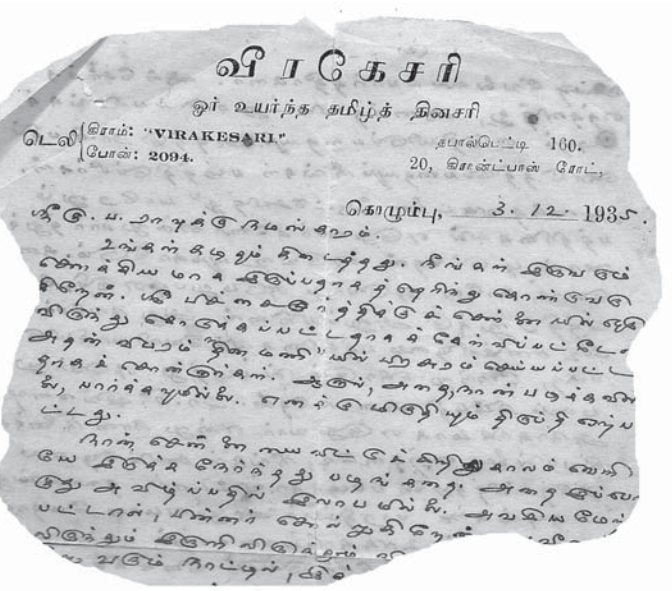 வீரகேசரி
ஓர் உயர்ந்த தமிழ்த் தினசரி
டெலி கிராம்: "VIRAKESARI."
போன்: 2094.
தபால்பெட்டி 160.
20, கிராண்ட்பாஸ் ரோட்,
கொழும்பு, 3. 12. 1935.
ஸ்ரீ கு. ப. ராவுக்கு நமஸ்காரம்.
உங்கள் கடிதம் கிடைத்தது. நீங்கள் இருவரும்
சௌக்கியமாக இருப்பதாகத் தெரிந்து கொண்டு
கிறேன். ஸ்ரீ சென்னையில்
விருந்து கொடுக்கப்பட்டதாகக் கேள்விப்பட்டேன்
அதன் விபரம் "தினமணி"யில் பிரசுரம் செய்யப்பட்ட
தாகச் சொன்னார்கள். ஆனால், அதை, நான் படிக்கவில்
லை, பார்க்கவுமில்லை. எனக்கு மிகுதியும் திருப்தி ஏற்ப
ட்டது.
நான் சென்னையை விட்டுக் காலம் வெளி
யே இருக்க நேர்ந்தது பழங்கதை. அதை இப்பொ
ழுது அவிழ்ப்பதில் இலாபமில்லை. அவசியமேற்
பட்டால், பின்னர் சொல்லுகிறேன்.
விருந்தும்
வரும் நாட்டில்,